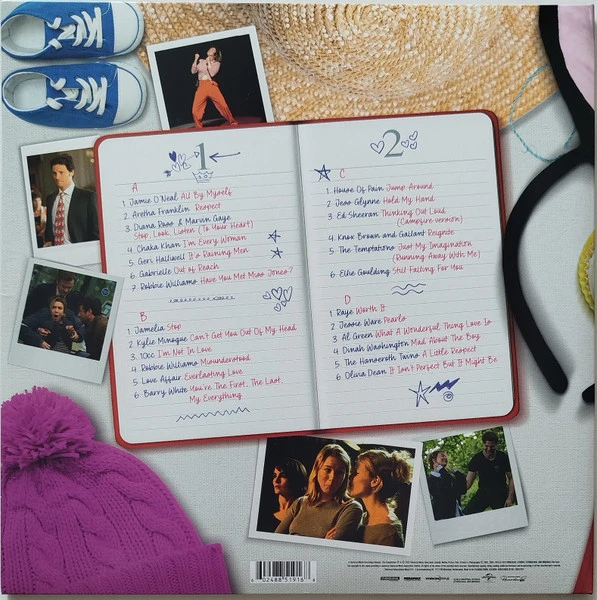 1
A
1. Jamie O'Neal All By Myself
2. Aretha Franklin Respect
3. Diana Ross & Marvin Gaye
Stop, Look, Listen (To Your Heart)
4. Chaka Khan I'm Every Woman
5. Geri Halliwell It's Raining Men
6. Gabrielle Out of Reach
7. Robbie Williams Have You Met Miss Jones?
B
1. Jamelia Stop
2. Kylie Minogue Can't Get You Out Of My Head
3. 10cc I'm Not In Love
4. Robbie Williams Misunderstood
5. Love Affair Everlasting Love
6. Barry White You're The First, The Last,
My Everything
2
C
1. House Of Pain Jump Around
2. Jess Glynne Hold My Hand
3. Ed Sheeran Thinking Out Loud
(Campfire version)
4. Knox Brown and Gallant Reignite
5. The Temptations Just My Imagination
(Running Away With Me)
6. Ellie Goulding Still Falling For You
D
1. Raye Worth It
2. Jessie Ware Pearls
3. Al Green What A Wonderful Thing Love Is
4. Dinah Washington Mad About The Boy
5. The Hanseroth Twins A Little Respect
6. Olivia Dean It Isn't Perfect But It Might Be
6 02488 51916 4